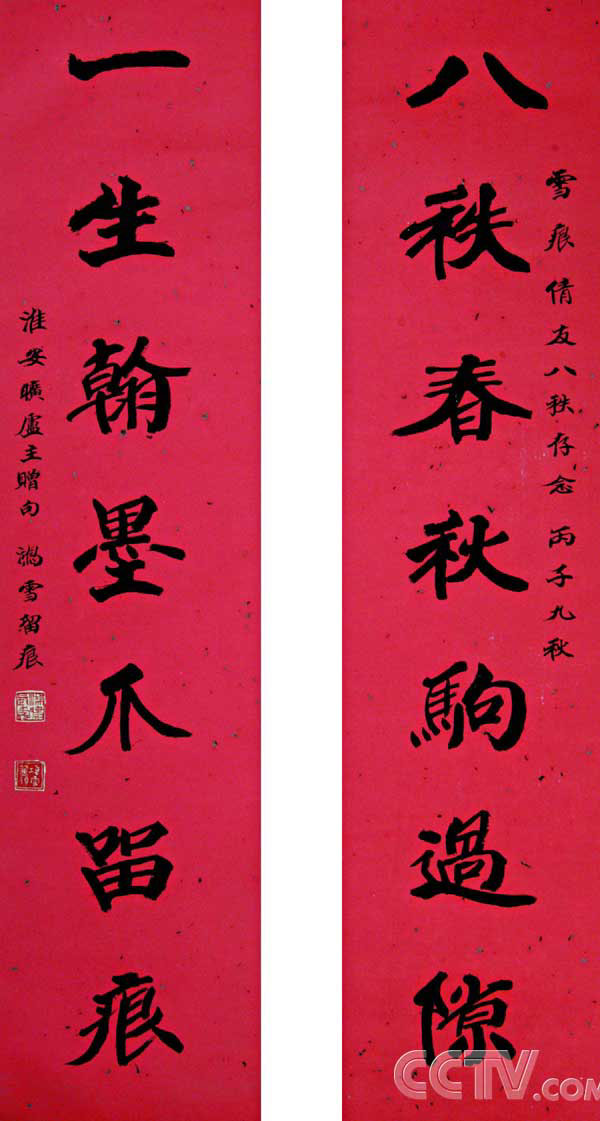 雪痕倩友八秩存念 丙子九秋
八秩春秋駒過隙
一生翰墨爪留痕
淮安曠盧主贈句 雪留痕
CCTV.COM